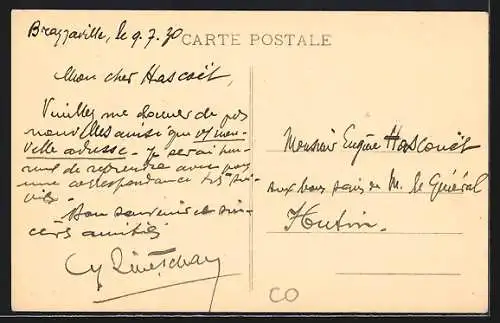 Brazzaville, le 9.7.30
CARTE POSTALE
Mon cher Hascoët,
Veuillez me donner de vos
nouvelles ainsi que votre nou-
velle adresse. Je serai heu-
reux de reprendre avec vous
une correspondance très sui-
vie.
Bon souvenir et sin-
cères amitiés
Monsieur Eugène Hascouët
aux bons soins de M. le Général
Hutin.
CO